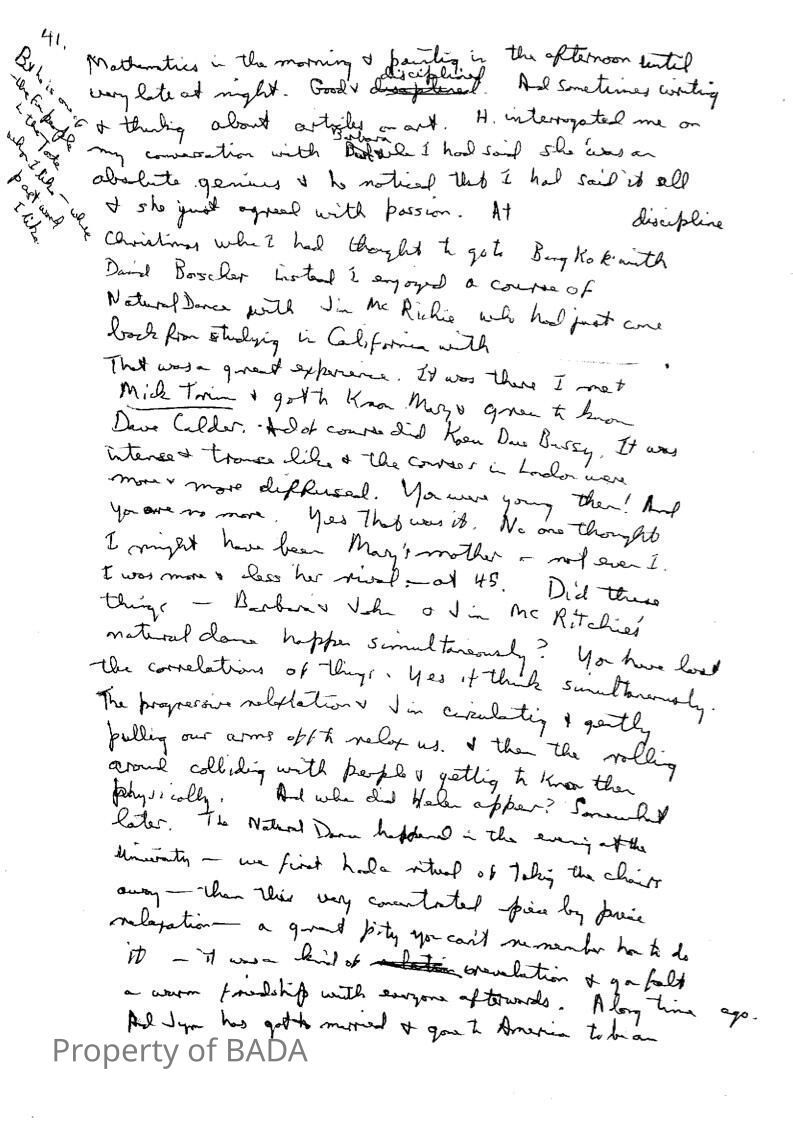 41.
But he is one of
the few people
in the Tate
who I like — whose
past work
I like.
Mathematics in the morning & painting in the afternoon until
disciplined
very late at night. Good & disciplined. And sometimes writing
& thinking about articles on art. H. interrogated me on
Barbara
my conversation with while I had said she was an
absolute genius & he noticed that I had said it all
& she just agreed with passion. At discipline
Christmas when I had thought to go to Bang Kok with
David Boscher instead I enjoyed a course of
Natural Dance with Jim Mc Richie who had just come
back from studying in California with .
That was a great experience. It was there I met
Mick & got to know Mary & grew to know
Dave Calder. And of course did know Dave Bussy. It was
intense & trance like & the courses in London were
more & more diffused. You were young then! And
you are no more. Yes that was it. No one thought
I might have been Mary's mother — not even I.
I was more & less her rival — at 45. Did these
things — Barbara & John & Jim Mc Ritchie's
natural dance happen simultaneously? You have lost
the correlations of things. Yes I think simultaneously.
The progressive relaxation & Jim circulating & gently
pulling our arms off to relax us. & then the rolling
around colliding with people & getting to know them
physically. And when did Helen appear? Somewhat
later. The Natural Dance happened in the evening at the
University — we first had a ritual of taking the chairs
away — then this very concentrated piece by piece
relaxation — a great pity you can't remember how to do
it — it was a kind of revelation & you felt
a warm friendship with everyone afterwards. A long time ago.
And Jym has got married & gone to America to be an
Property of BADA